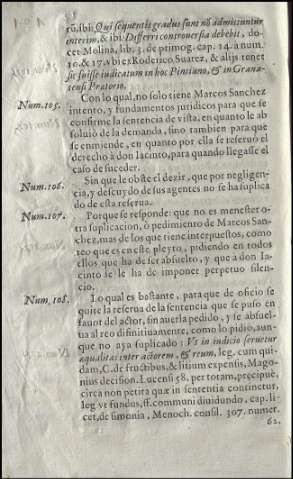 rũ, ibi: Qui sequentis gradus sunt nõ admittuntur
interim, & ibi: Differri controuersia debebit, do-
cet Molina, lib. 3. de primog. cap. 14. à num.
10. & 17. vbi ex Roderico Suarez, & alijs tenet
sic fuisse iudicatum in hoc Pintiano, & in Grana-
tensi Pretorio.
Num. 105. Con lo qual, no solo tiene Marcos Sanchez
intento, y fundamentos juridicos para que se
confirme la sentencia de vista, en quanto le ab
soluiò de la demanda, sino tambien para que
se enmiende, en quanto por ella se reseruò el
derecho à don Iacinto, para quando llegasse el
caso de suceder.
Num. 106. Sin que le obste el dezir, que por negligen-
cia, y descuydo de sus agentes no se ha suplica
do de esta reserua.
Num. 107. Porque se responde: que no es menester o-
tra suplicacion, ò pedimento de Marcos San-
chez, mas de los que tiene interpuestos, como
reo que es en este pleyto, pidiendo en todos
ellos que ha de ser absuelto, y que à don Ia-
cinto se le ha de imponer perpetuo silen-
cio.
Num. 108. Lo qual es bastante, para que de oficio se
quite la reserua de la sentencia que se puso en
fauor del actor, sin auerla pedido, y se absuel-
ua al reo difinitiuamente, como lo pidio, aun-
que no aya suplicado: Vt in iudicio seruetur
æqualitas inter actorem, & reum, leg. cum qui-
dam, C. de fructibus, & litium expensis, Mago-
nius decision. Lucensi 58. per totam, præcipuè,
circa non petita quæ in sententia continetur,
leg. vt fundus, ff. communi diuidundo, cap. li-
cet, de simonia, Menoch. consil. 307. numer.
62.